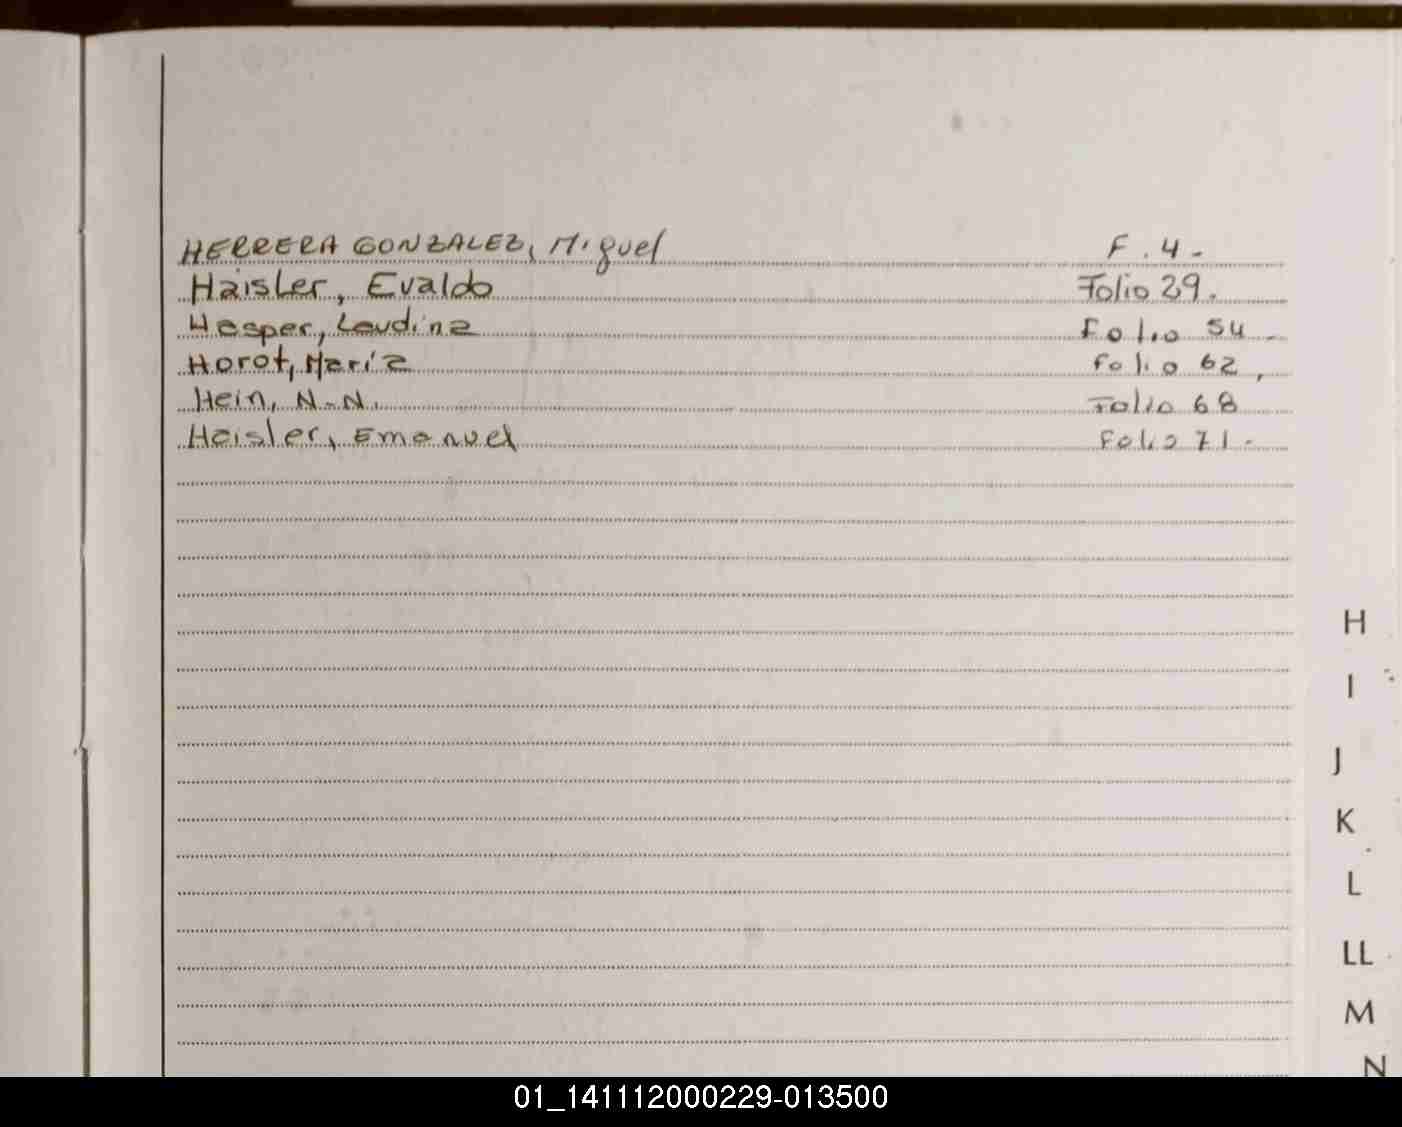 HERRERA GONZALEZ, Miguel F. 4.-
Haisler, Evaldo Folio 29.
Hesper, Laudina Folio 54.-
Horot, María Folio 62.
Hein, N.N. Folio 68
Heisler, Emanuel Folio 71.-
H
I
J
K
L
LL
M
N
01_141112000229-013500